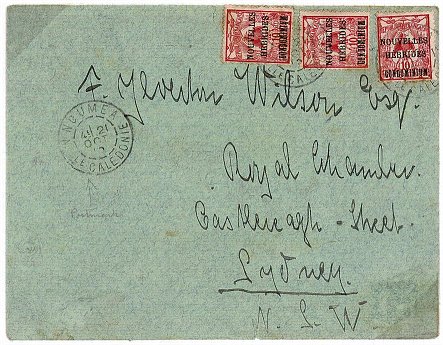 NOUVELLES
HEBRIDES
CONDOMINIUM
10
NOUVELLES
HEBRIDES
10
CONDOMINIUM
NOUVELLES
HEBRIDES
10
CONDOMINIUM
Wilson Esq.
NOUMEA
21
Lle CALEDONIE
Royal Chambers
Castlereagh Street
Sydney.
N. S. W
Postmark